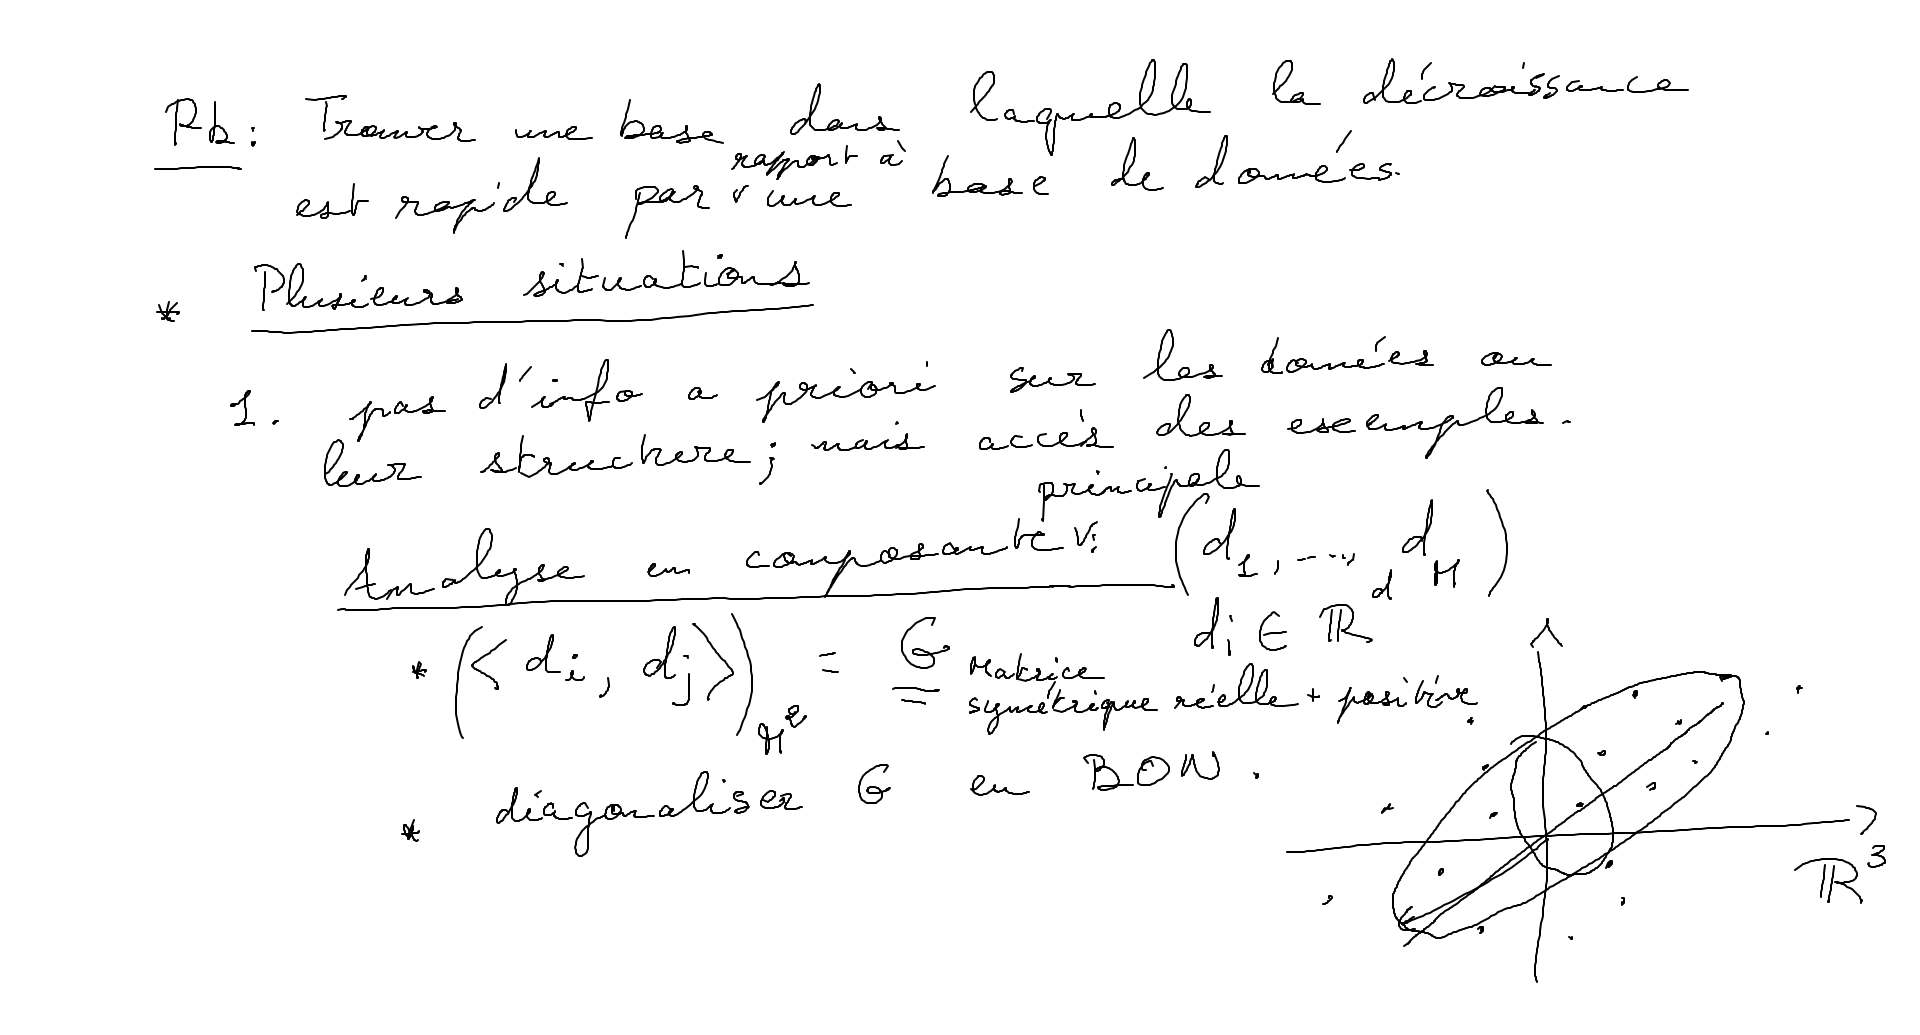 Pb: Trouver une base dans laquelle la décroissance
est rapide par rapport à une base de données.
* Plusieurs situations
1. pas d'info a priori sur les données ou
leur structure; mais accès des exemples.
Analyse en composante principale: (d_1, ..., d_M)
d_i ∈ ℝ^d
* (< d_i, d_j >)_{M^2} = G Matrice
symétrique réelle + positive
* diagonaliser G en BON.
ℝ^3